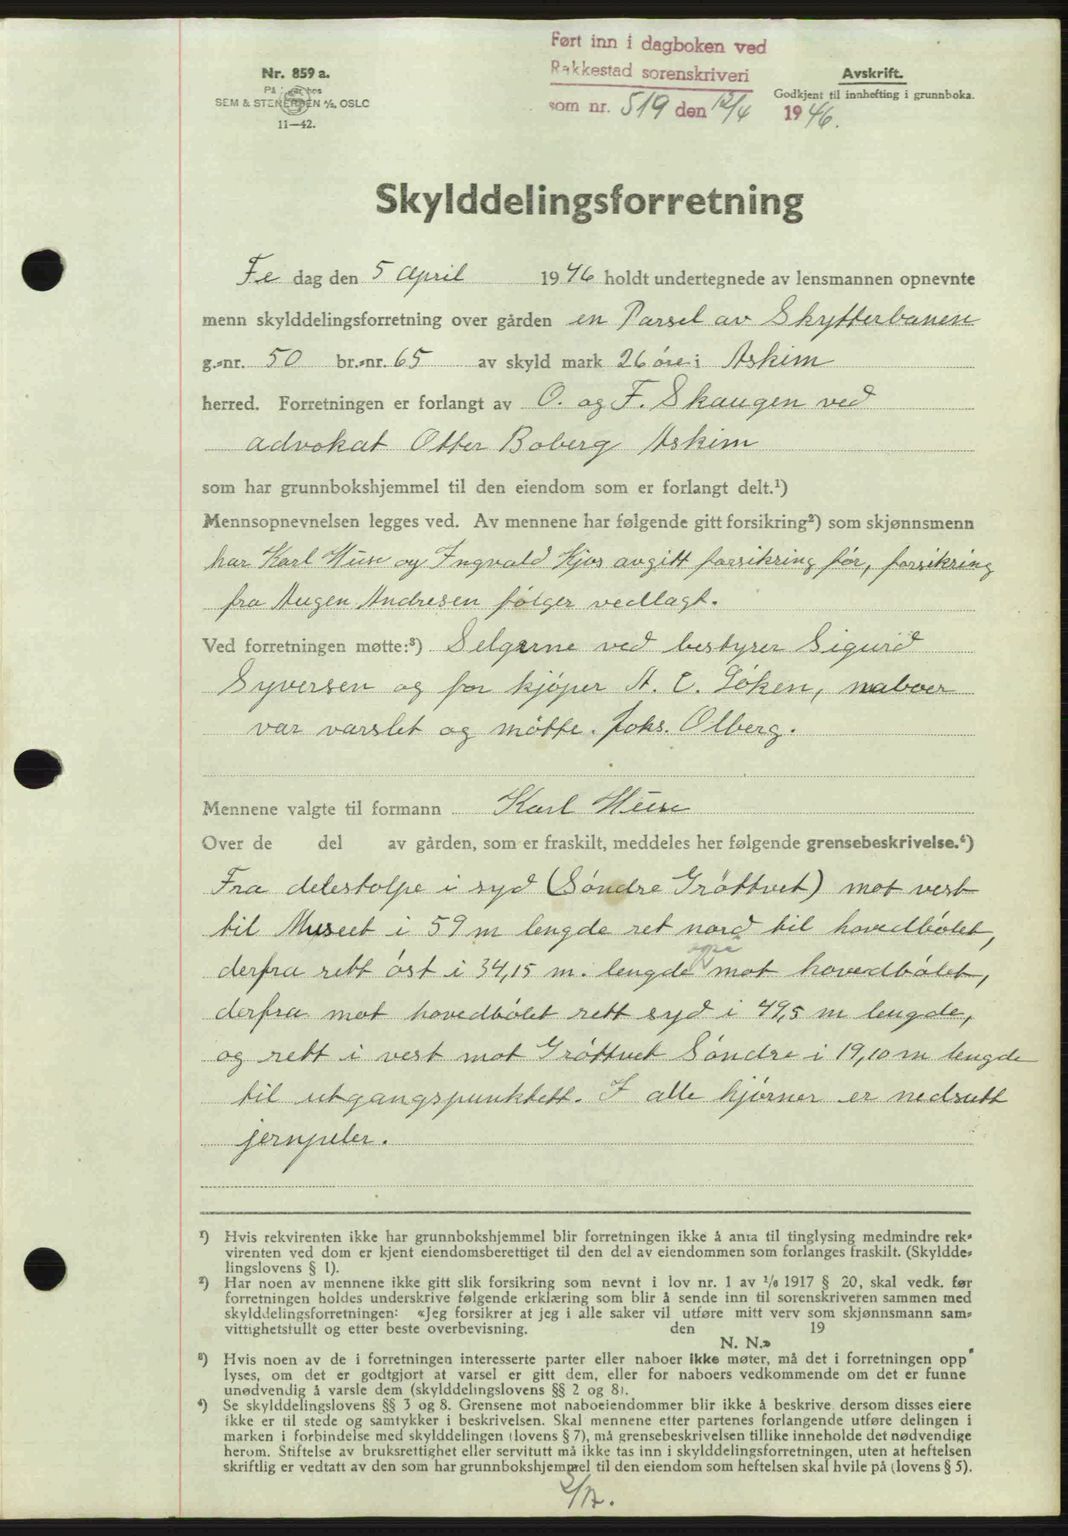 Ført inn i dagboken ved
Rakkestad sorenskriveri
som nr. 519 den 12/4 1946.
Nr. 859 a.
På lager hos
SEM & STENERSEN A/S, OSLO
11—42.
Avskrift.
Godkjent til innhefting i grunnboka.
Skylddelingsforretning
Fre dag den 5 April 1946 holdt undertegnede av lensmannen opnevnte
menn skylddelingsforretning over gården en Parsel av Skytterbanen
g.-nr. 50 br.-nr. 65 av skyld mark 26 øre i Askim
herred. Forretningen er forlangt av O. og F. Skaugen ved
advokat Otter Boberg Askim
som har grunnbokshjemmel til den eiendom som er forlangt delt.¹)
Mennsopnevnelsen legges ved. Av mennene har følgende gitt forsikring²) som skjønnsmenn
har Karl Huse og Ingvald Kjos avgitt forsikring før, forsikring
fra Augen Andresen følger vedlagt.
Ved forretningen møtte:³) Selgerne ved bestyrer Sigurd
Syversen og for kjøper A. C. Løken, naboer
var varslet og møtte. Johs. Olberg.
Mennene valgte til formann Karl Huse
Over de del av gården, som er fraskilt, meddeles her følgende grensebeskrivelse.⁴)
Fra delestolpe i syd (Søndre Grøttvet) mot vest
til Museet i 59 m lengde ret nord til hovedbølet,
også
derfra rett øst i 34,15 m. lengde mot hovedbølet,
derfra mot hovedbølet rett syd i 49,5 m lengde,
og rett i vest mot Grøttvet Søndre i 19,10 m lengde
til utgangspunktett. I alle hjørner er nedsatt
jernpeler.
¹) Hvis rekvirenten ikke har grunnbokshjemmel blir forretningen ikke å anta til tinglysing medmindre rek-
virenten ved dom er kjent eiendomsberettiget til den del av eiendommen som forlanges fraskilt. (Skyldde-
lingslovens § 1).
²) Har noen av mennene ikke gitt slik forsikring som nevnt i lov nr. 1 av 1/6 1917 § 20, skal vedk. før
forretningen holdes underskrive følgende erklæring som blir å sende inn til sorenskriveren sammen med
skylddelingsforretningen: «Jeg forsikrer at jeg i alle saker vil utføre mitt verv som skjønnsmann sam-
vittighetsfullt og etter beste overbevisning. den 19
N. N.»
³) Hvis noen av de i forretningen interesserte parter eller naboer ikke møter, må det i forretningen opp
lyses, om det er godtgjort at varsel er gitt dem, eller for naboers vedkommende om det er funne
unødvendig å varsle dem (skylddelingslovens §§ 2 og 8).
⁴) Se skylddelingslovens §§ 3 og 8. Grensene mot naboeiendommer blir ikke å beskrive dersom disses eiere
ikke er til stede og samtykker i beskrivelsen. Skal mennene etter partenes forlangende utføre delingen i
marken i forbindelse med skylddelingen (lovens § 7), må grensebeskrivelsen tillike inneholde det nødvendige
herom. Stiftelse av bruksrettighet eller servitutt må ikke tas inn i skylddelingsforretningen, uten at heftelsen
skriftlig er vedtatt av den som har grunnbokshjemmel til den eiendom som heftelsen skal hvile på (lovens § 5).